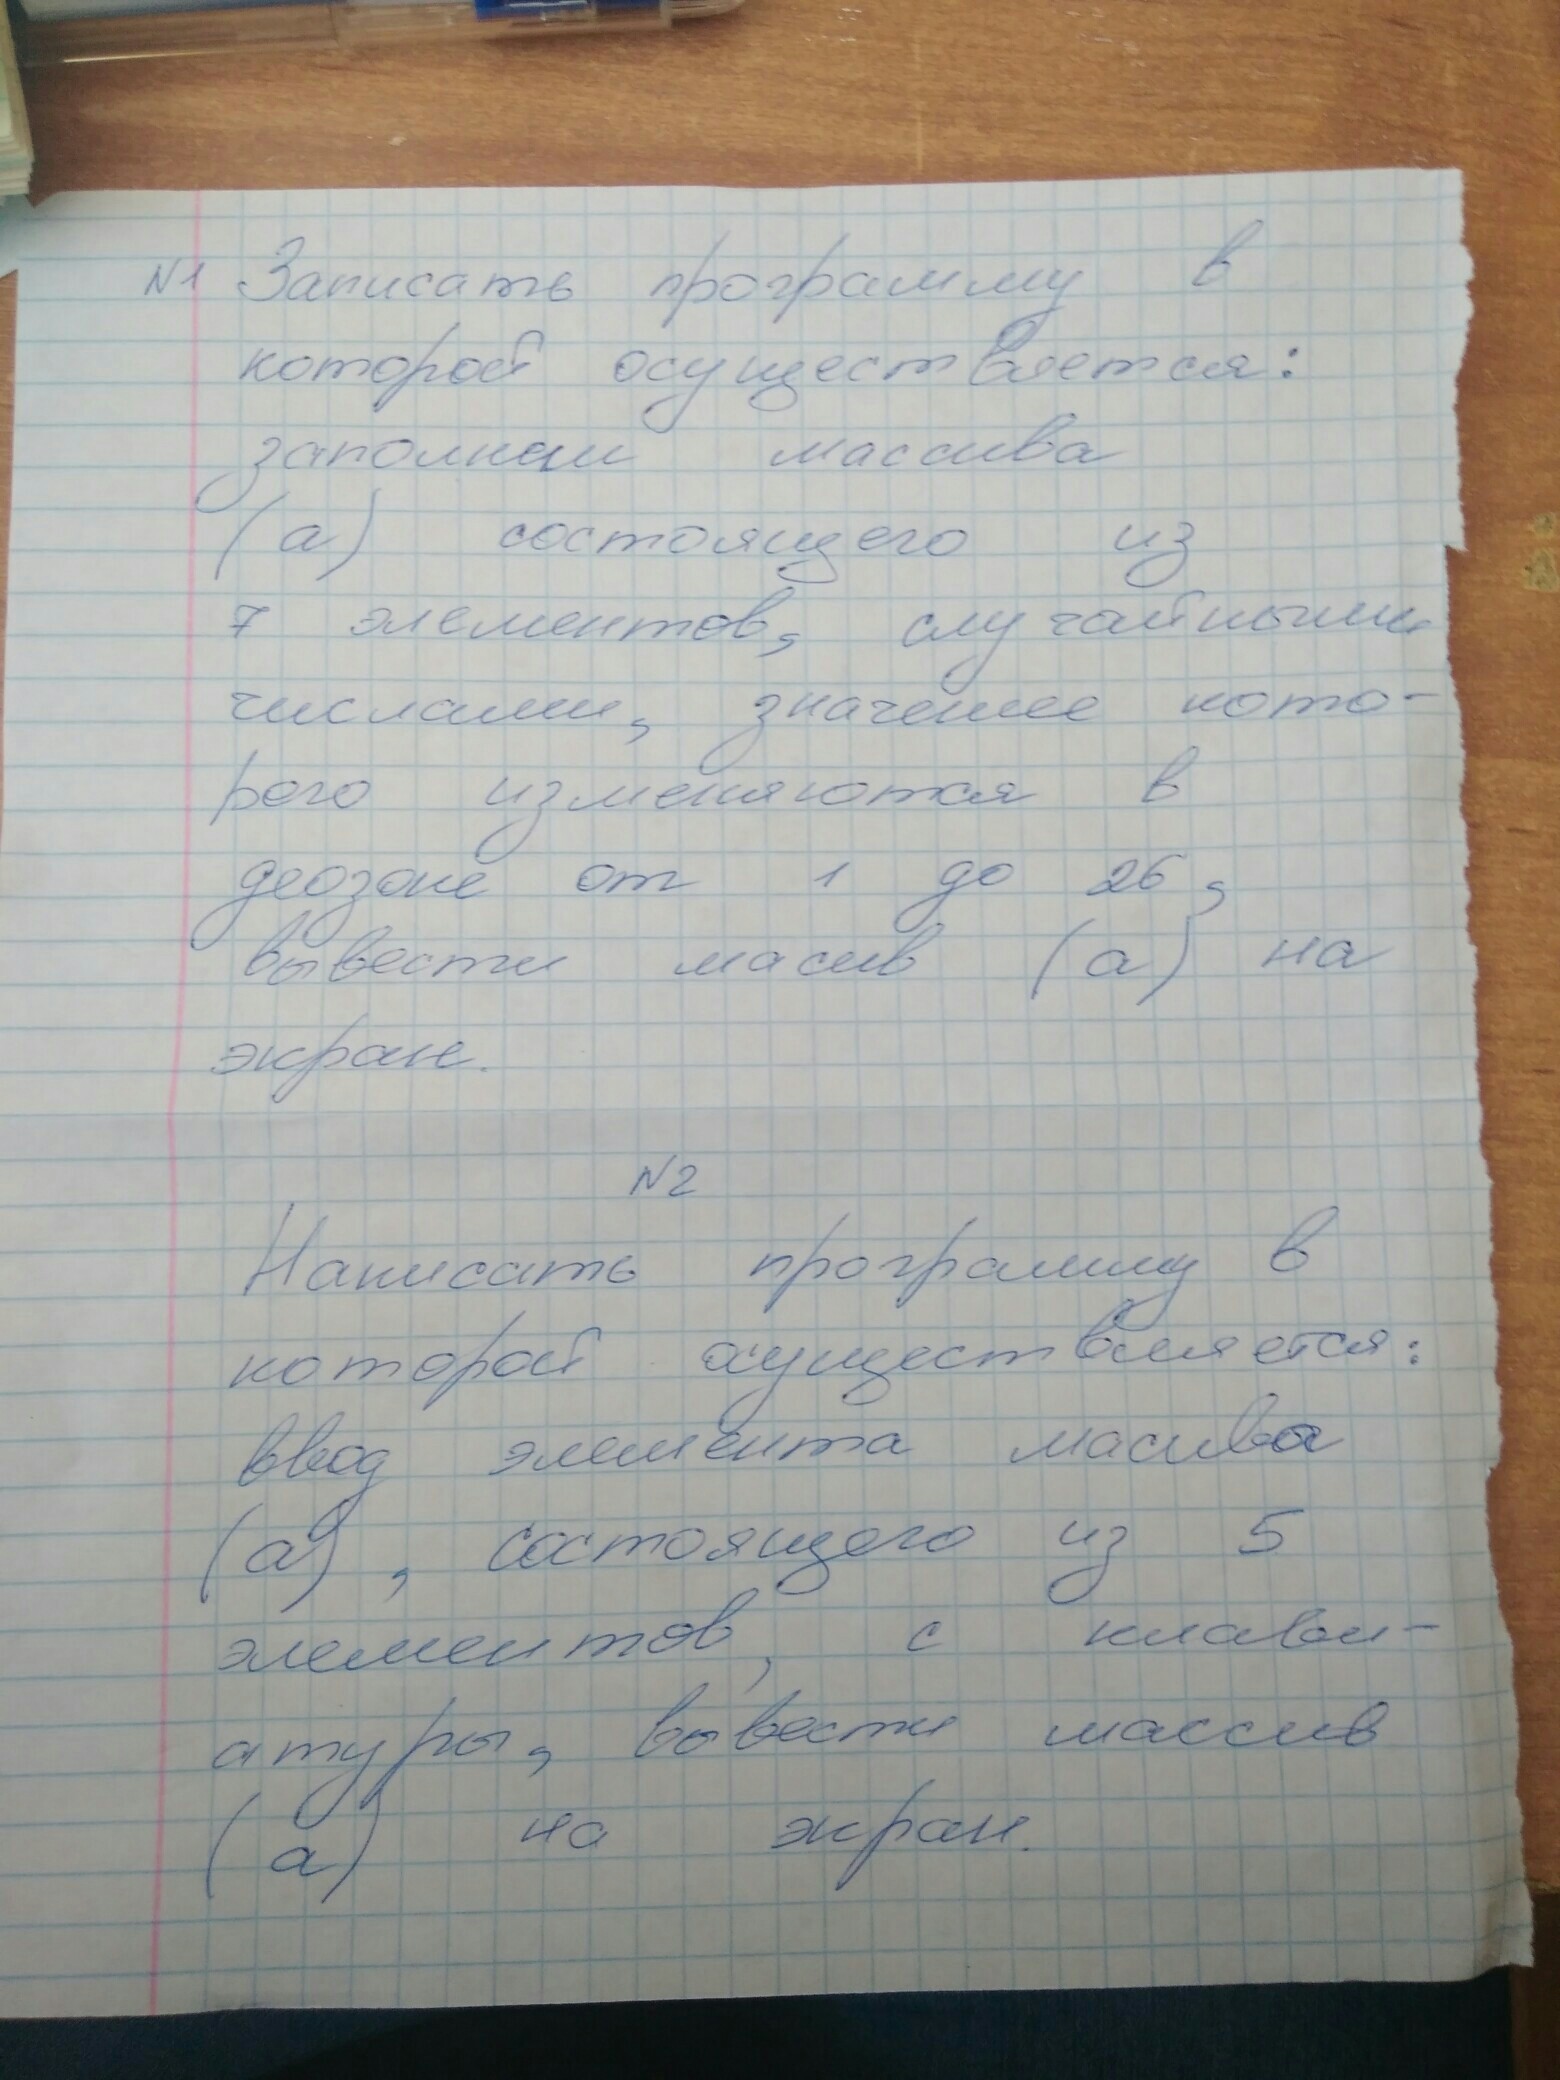 N1 Записать программу в
которой осуществляется:
заполнеии массива
(а) состоящего из
7 элементов, случайными
числами, значение кото-
рого изменяются в
деозоне от 1 до 26,
вывести масив (а) на
экран.
N2
Написать программу в
которой осуществляется:
ввод элемента масива
(а), состоящего из 5
элементов, с клави-
атуры, вывести массив
(а) на экран.